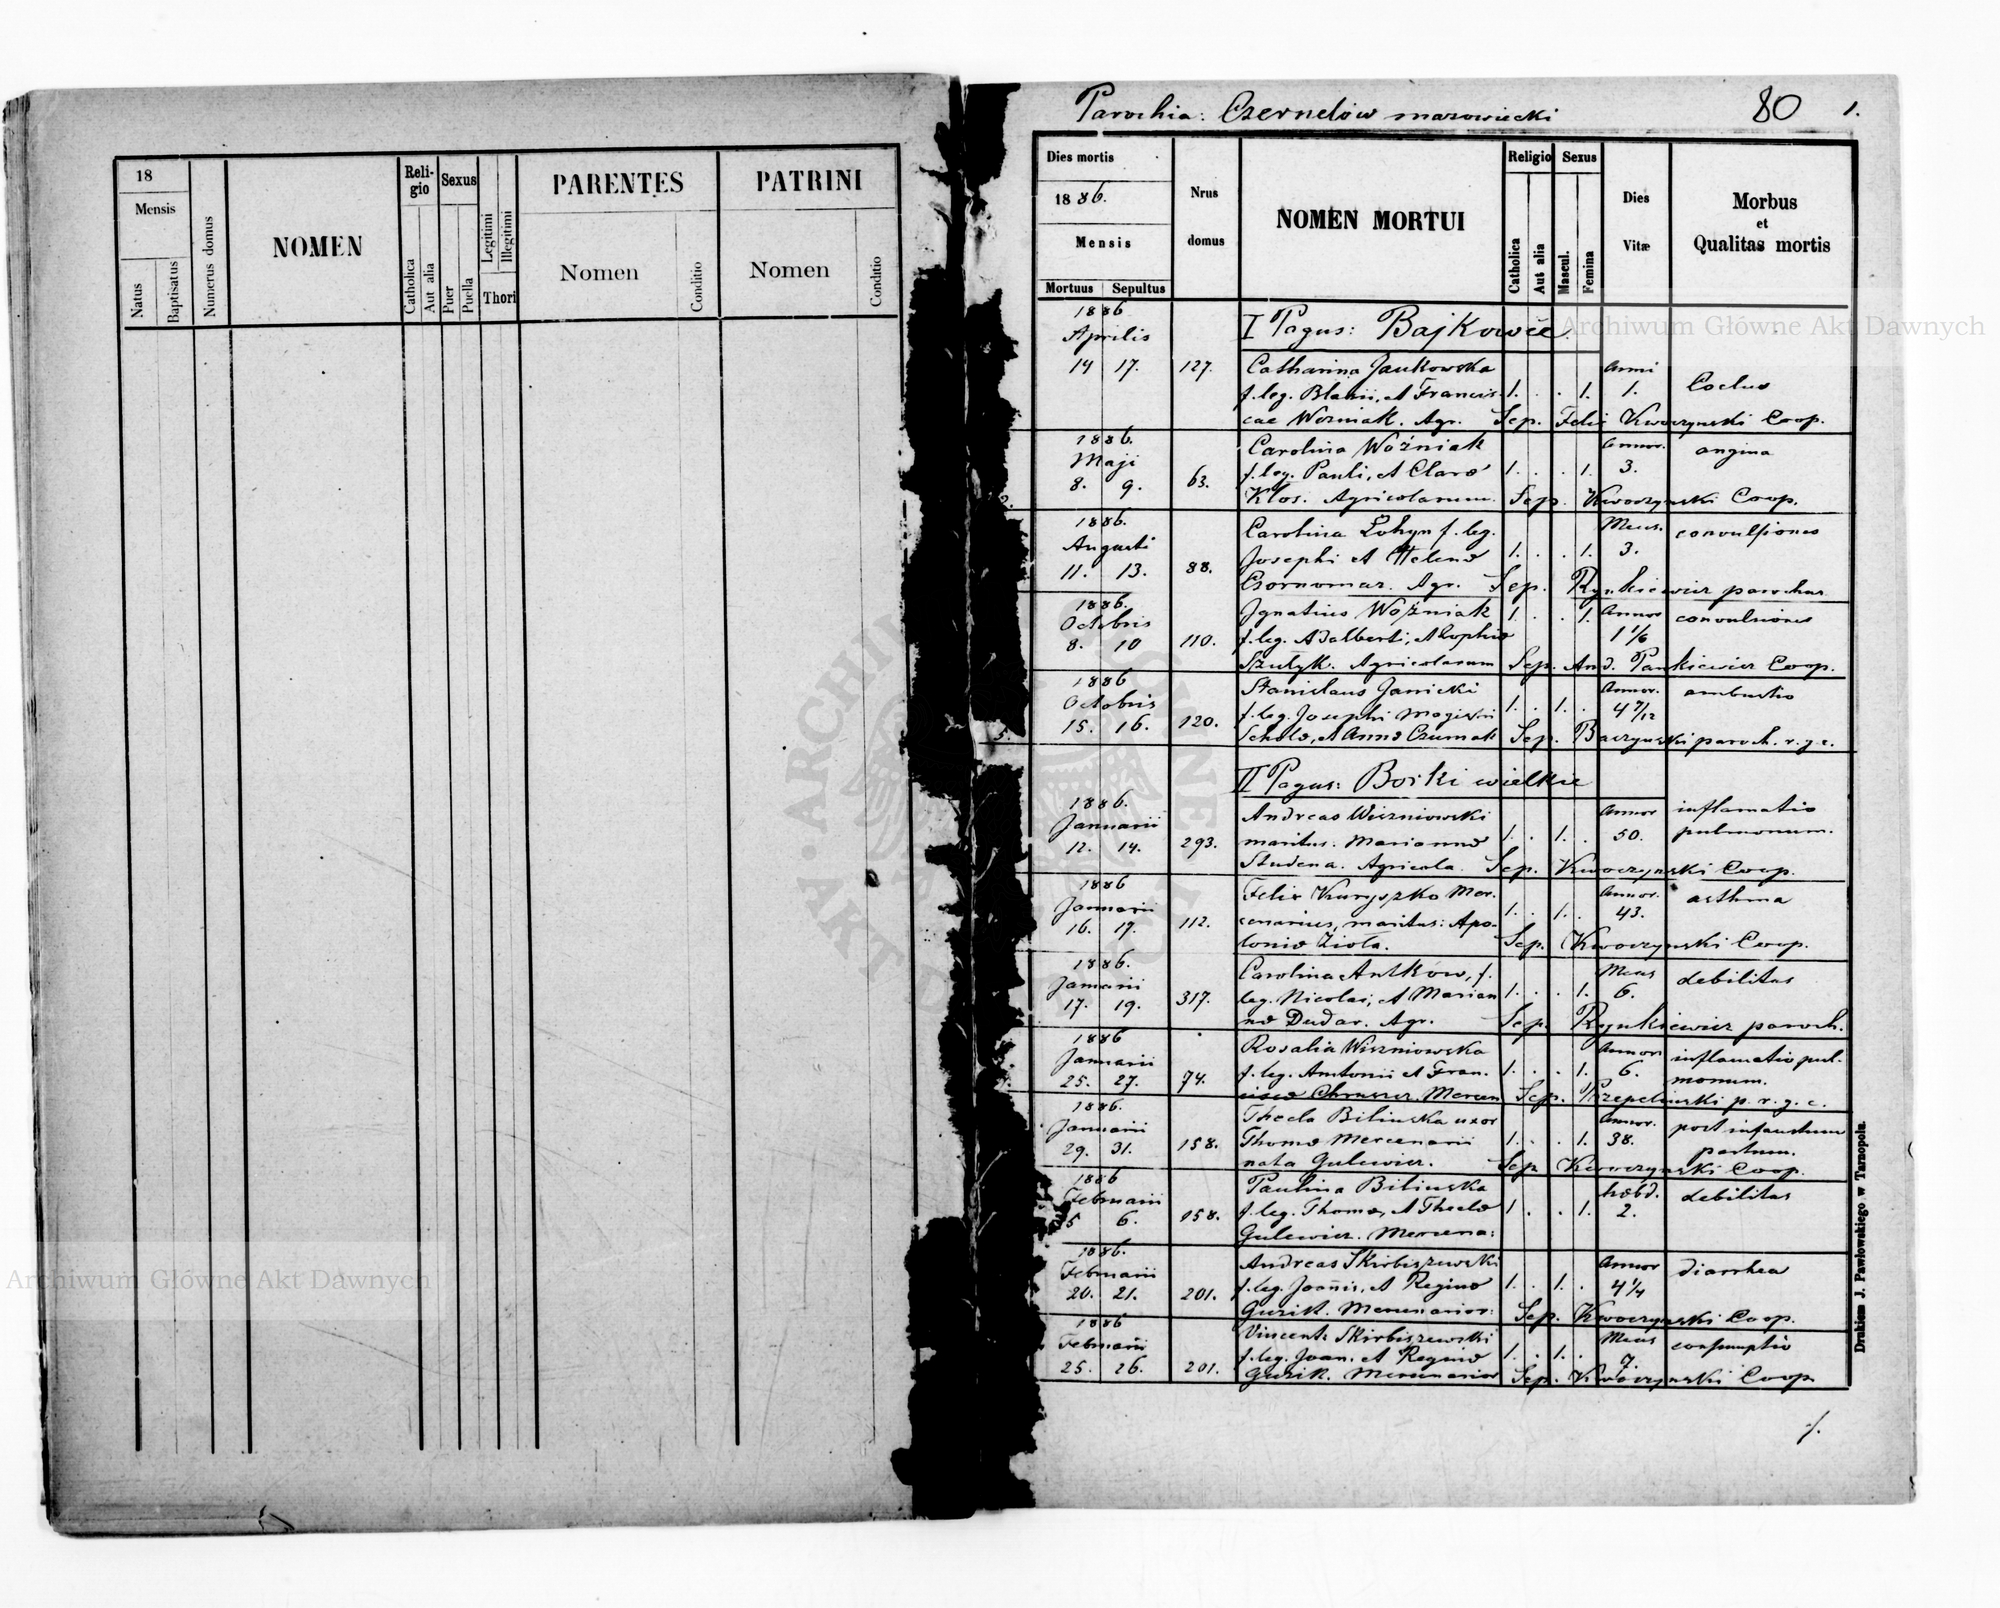 18
Mensis
Natus
Baptisatus
Numerus domus
NOMEN
Reli-
gio
Catholica
Aut alia
Sexus
Puer
Puella
Legitimi
Illegitimi
Thori
PARENTES
Nomen
Conditio
PATRINI
Nomen
Conditio
Parochia: Czernelów mazowiecki 80 1.
Dies mortis
1886.
Mensis
Mortuus Sepultus
Nrus
domus
NOMEN MORTUI
Religio
Catholica
Aut alia
Sexus
Mascul.
Femina
Dies
Vitæ
Morbus
et
Qualitas mortis
I Pagus: Bajkowce
1886
Aprilis
14 17. 127.
Catharina Jankowska
f. leg. Blasii, et Francis-
cae Wozniak. Agr.
1. . . 1.
Anni
1.
Sep. Felix Kwoczynski Coop.
1886.
Maji
8. 9. 63.
Carolina Woźniak
f. leg. Pauli, et Claræ
Kłos. Agricolarum.
1. . . 1.
Annor.
3.
angina
Sep. Kwoczynski Coop.
1886.
Augusti
11. 13. 88.
Carolina Łohyn f. leg.
Josephi et Helenæ
Czornomaz. Agr.
1. . . 1.
Mens.
3.
convulsiones
Sep. Rynkiewicz parochus
1886.
Octobris
8. 10 110.
Ignatius Woźniak
f. leg. Adalberti, et Sophiæ
Szulyk. Agricolarum
1. . . 1.
Annor
1 1/6
convulsiones
Sep. And. Pankiewicz Coop.
1886
Octobris
15. 16. 120.
Stanislaus Janicki
f. leg. Josephi Magistri
Scholæ, et Annæ Czumak
1. . 1. .
Annor.
4 7/12
ambustio
Sep. Baczynski paroch. r. g. c.
5.
II Pagus: Borki wielkie
1886.
Januarii
12. 14. 293.
Andreas Wiszniowski
maritus. Mariannæ
Studena. Agricola.
1. . 1. .
Annor
50.
inflamatio
pulmonum.
Sep. Kwoczynski Coop.
1886
Januarii
16. 19. 112.
Felix Kuryszko Mer-
cenarius, maritus: Apo-
loniæ Zioła.
1. . 1. .
Annor.
43.
asthma
Sep. Kwoczynski Coop.
1886.
Januarii
17. 19. 317.
Carolina Antków, f.
leg. Nicolai, et Marian
næ Dudar. Agr.
1. . . 1.
Mens
6.
debilitas
Sep. Rynkiewicz paroch.
1886
Januarii
25. 27. 74.
Rosalia Wiszniowska
f. leg. Antonii et Fran-
ciscæ Chruszcz. Mercen
1. . . 1.
Annor
6.
inflamatio pul-
monum.
Sep. p. r. g. c.
1886.
Januarii
29. 31. 158.
Thecla Bilinska uxor
Thomæ Mercenarii
nata Gulewicz.
1. . . 1.
Annor.
38.
post infaustum
partum.
Sep Kwoczynski Coop.
1886
Februarii
5 6. 158.
Paulina Bilinska
f. leg. Thomæ, et Theclæ
Gulewicz. Mercena:
1 . . 1.
hebd.
2.
debilitas
1886.
Februarii
20. 21. 201.
Andreas Skirbiszewski
f. leg. Joannis, et Reginæ
Guzik. Mercenarior:
1. . 1. .
Annor
4 1/4
diarrhea
Sep. Kwoczynski Coop.
1886
Februarii
25. 26. 201.
Vincenti Skirbiszewski
f. leg. Joan. et Reginæ
Guzik. Mercenarior
1. . 1. .
Mens
7.
consumptio
Sep. Kwoczynski Coop
Drukiem J. Pawłowskiego w Tarnopolu.
Archiwum Główne Akt Dawnych
Archiwum Główne Akt Dawnych